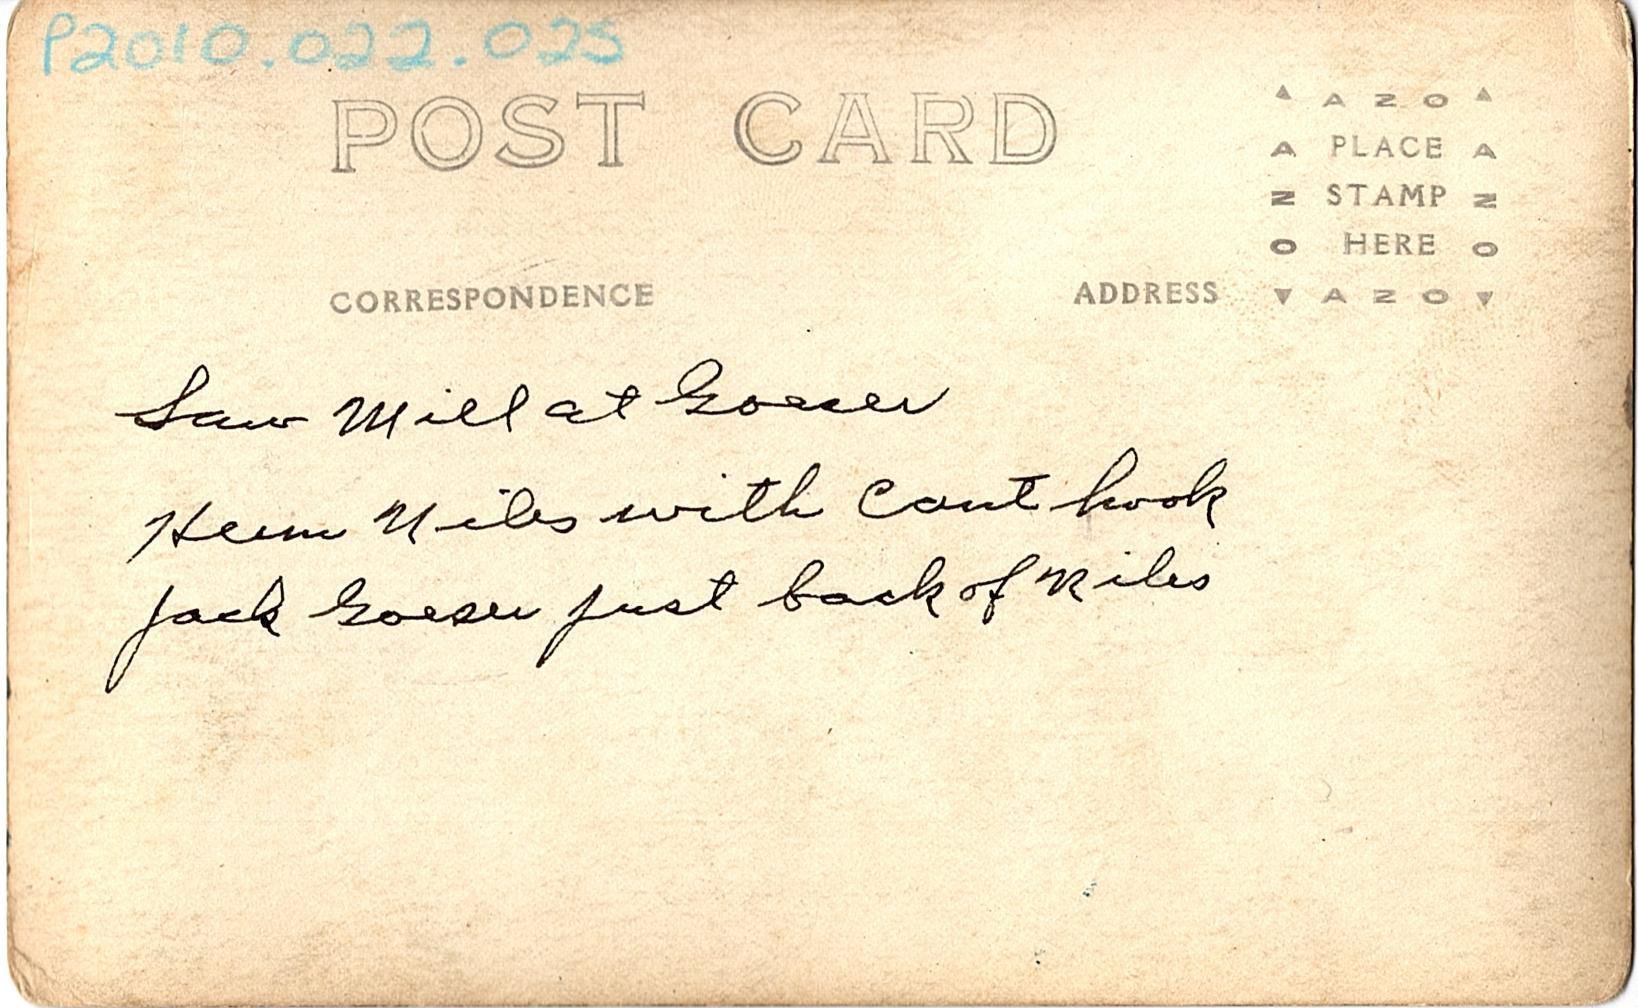 P2010.022.025
POST CARD
AZO
A PLACE A
N STAMP N
O HERE O
CORRESPONDENCE ADDRESS AZO
Saw Mill at Goeser
Niles with Cant hook
Jack Goeser just back of Niles